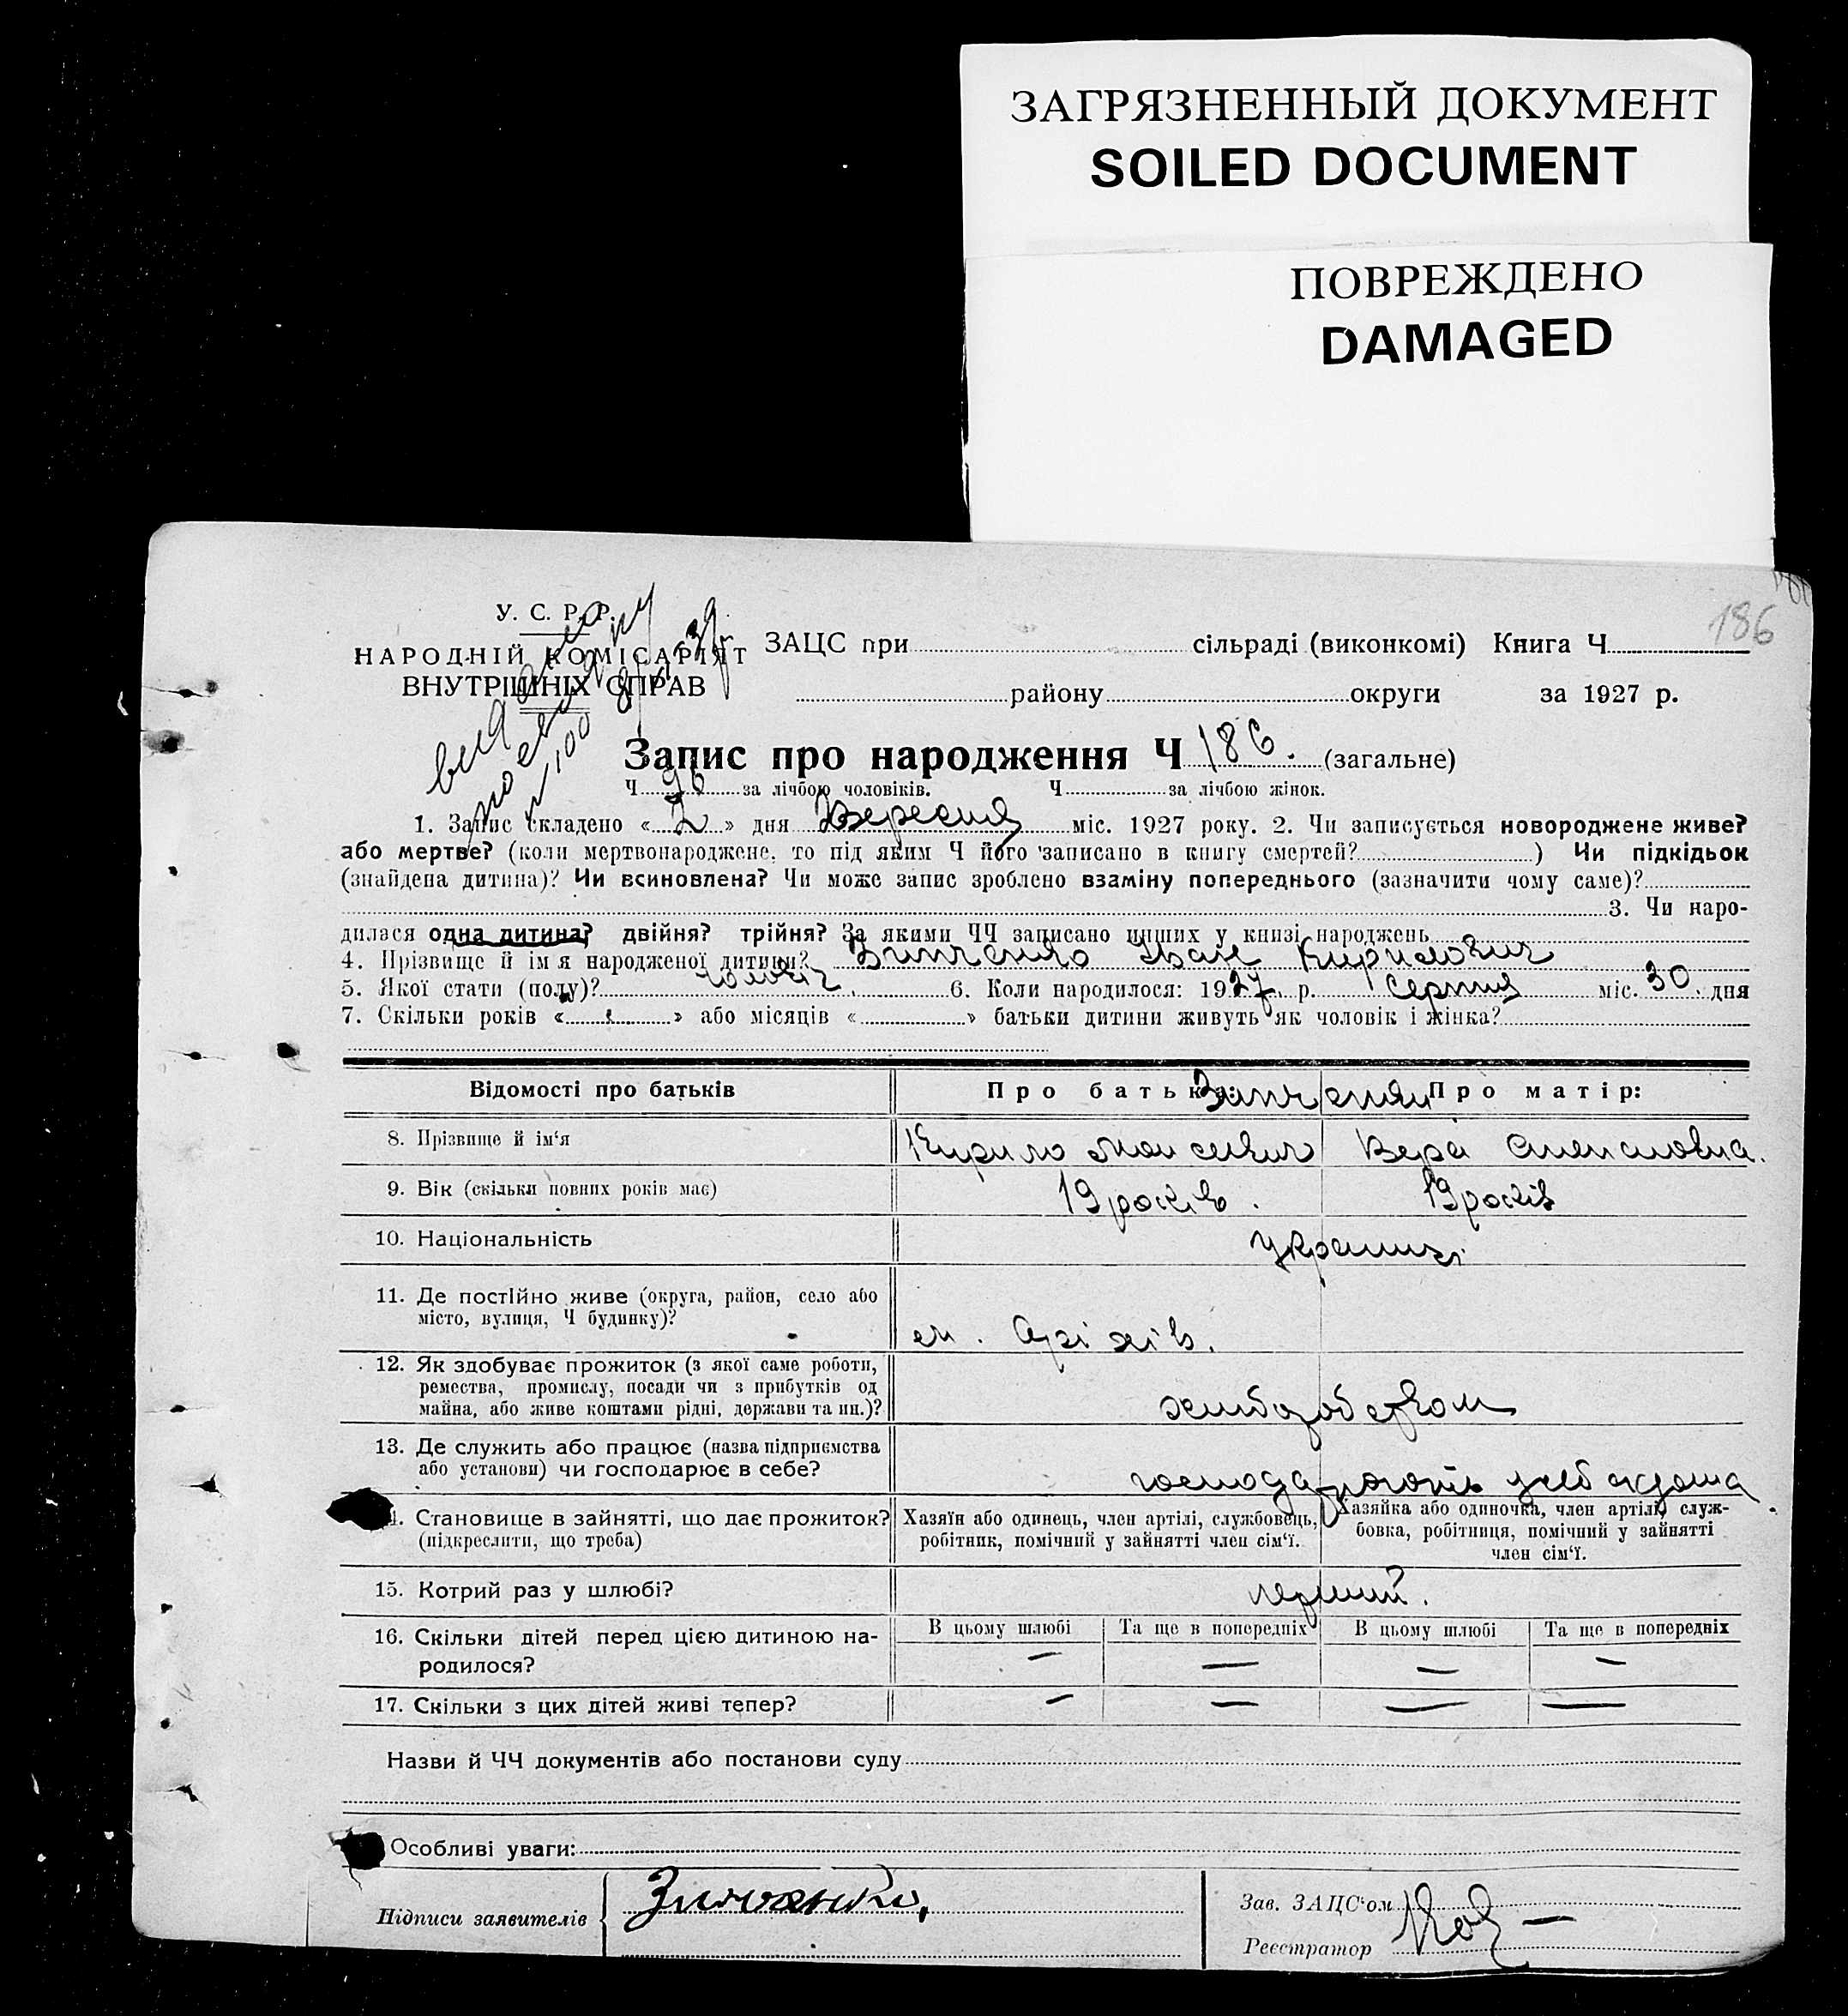 ЗАГРЯЗНЕННЫЙ ДОКУМЕНТ
SOILED DOCUMENT
ПОВРЕЖДЕНО
DAMAGED
186
У. С. Р. Р.
НАРОДНІЙ КОМІСАРІЯТ
ВНУТРІШНІХ СПРАВ
ЗАЦС при сільраді (виконкомі) Книга Ч
району округи за 1927 р.
Запис про народження Ч 186. (загальне)
Ч 96 за лічбою чоловіків. Ч за лічбою жінок.
1. Запис складено « 2 » дня Вересня міс. 1927 року. 2. Чи записується новороджене живе?
або мертве? (коли мертвонароджене, то під яким Ч його записано в книгу смертей? ) Чи підкідьок
(знайдена дитина)? Чи всиновлена? Чи може запис зроблено взаміну попереднього (зазначити чому саме)?
3. Чи наро-
дилася одна дитина? двійня? трійня? За якими ЧЧ записано инших у книзі народжень
4. Прізвище й ім'я народженої дитини? Зинченко Іван Кирилович
5. Якої стати (полу)? чоловіч. 6. Коли народилося: 1927 р. Серпня міс. 30 дня
7. Скільки років « » або місяців « » батьки дитини живуть як чоловік і жінка?
Відомості про батьків Про батька: Про матір:
8. Прізвище й ім'я Кирило Моисеевич Вера
9. Вік (скільки повних років має) 19 років. 19 років
10. Національність украинці
11. Де постійно живе (округа, район, село або
місто, вулиця, Ч будинку)? м. Оріхів.
12. Як здобуває прожиток (з якої саме роботи,
ремества, промислу, посади чи з прибутків од
майна, або живе коштами рідні, держави та ин.)? хліборобством
13. Де служить або працює (назва підприємства
або установи) чи господарює в себе? господарюють у себе дома.
14. Становище в зайнятті, що дає прожиток? Хазяїн або одинець, член артілі, службовець, Хазяйка або одиночка, член артілі, служ-
(підкреслити, що треба) робітник, помічний у зайнятті член сім'ї. бовка, робітниця, помічний у зайнятті
член сім'ї.
15. Котрий раз у шлюбі? перший.
16. Скільки дітей перед цією дитиною на- В цьому шлюбі Та ще в попередніх В цьому шлюбі Та ще в попередніх
родилося? — — — —
17. Скільки з цих дітей живі тепер? — — — —
Назви й ЧЧ документів або постанови суду
Особливі уваги:
Підписи заявителів
Зав. ЗАЦС'ом
Реєстратор